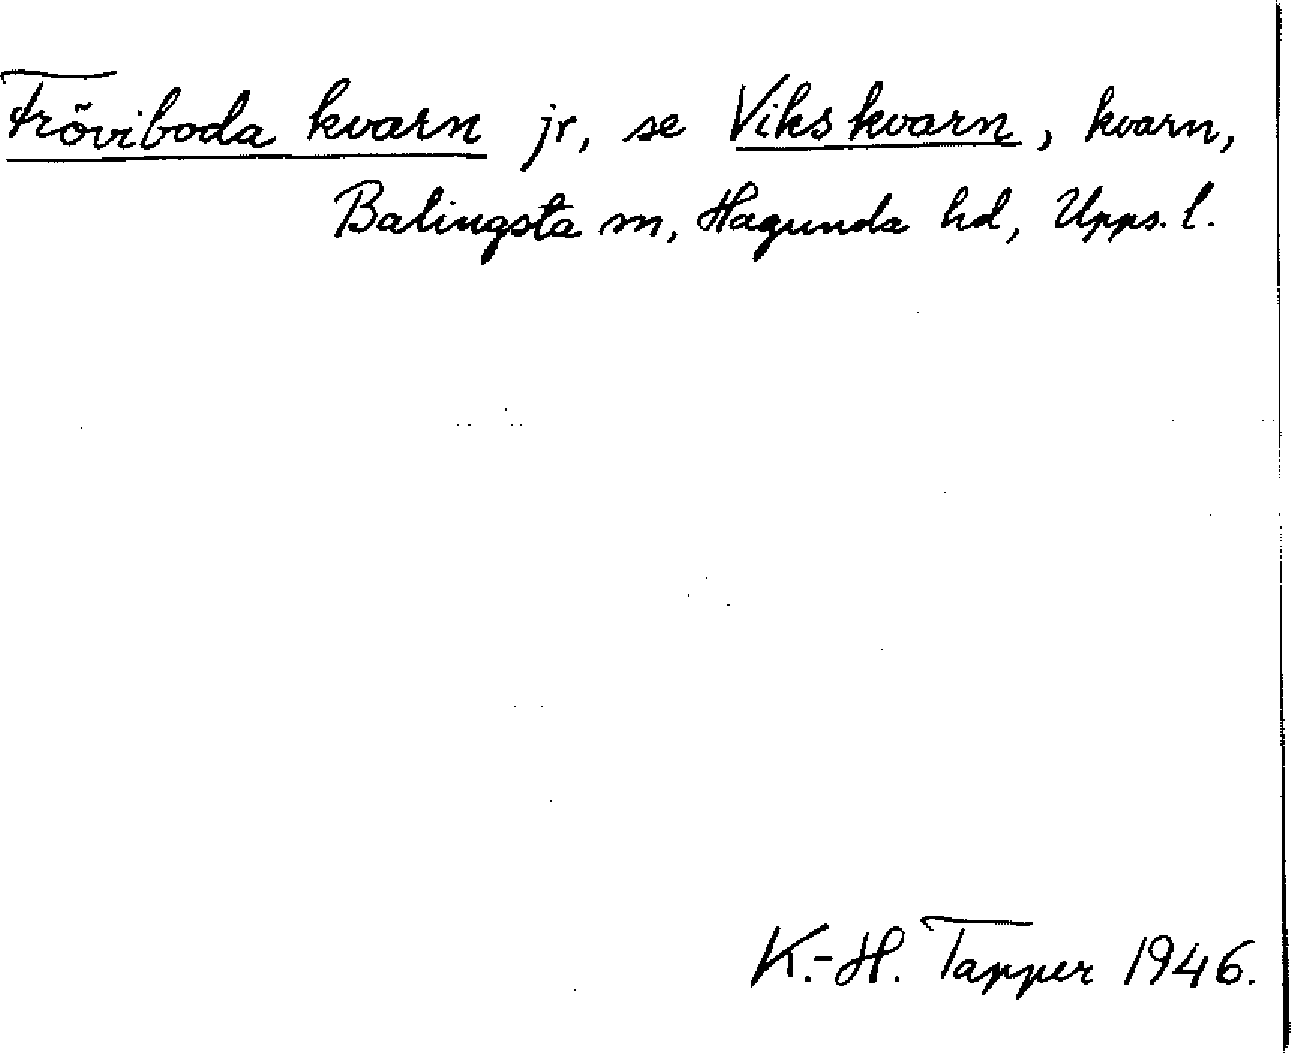 Fröviboda kvarn jr, se Viks kvarn, kvarn,
Balingsta sn, Hagunda hd, Upps. l.
K.-H. Tapper 1946.